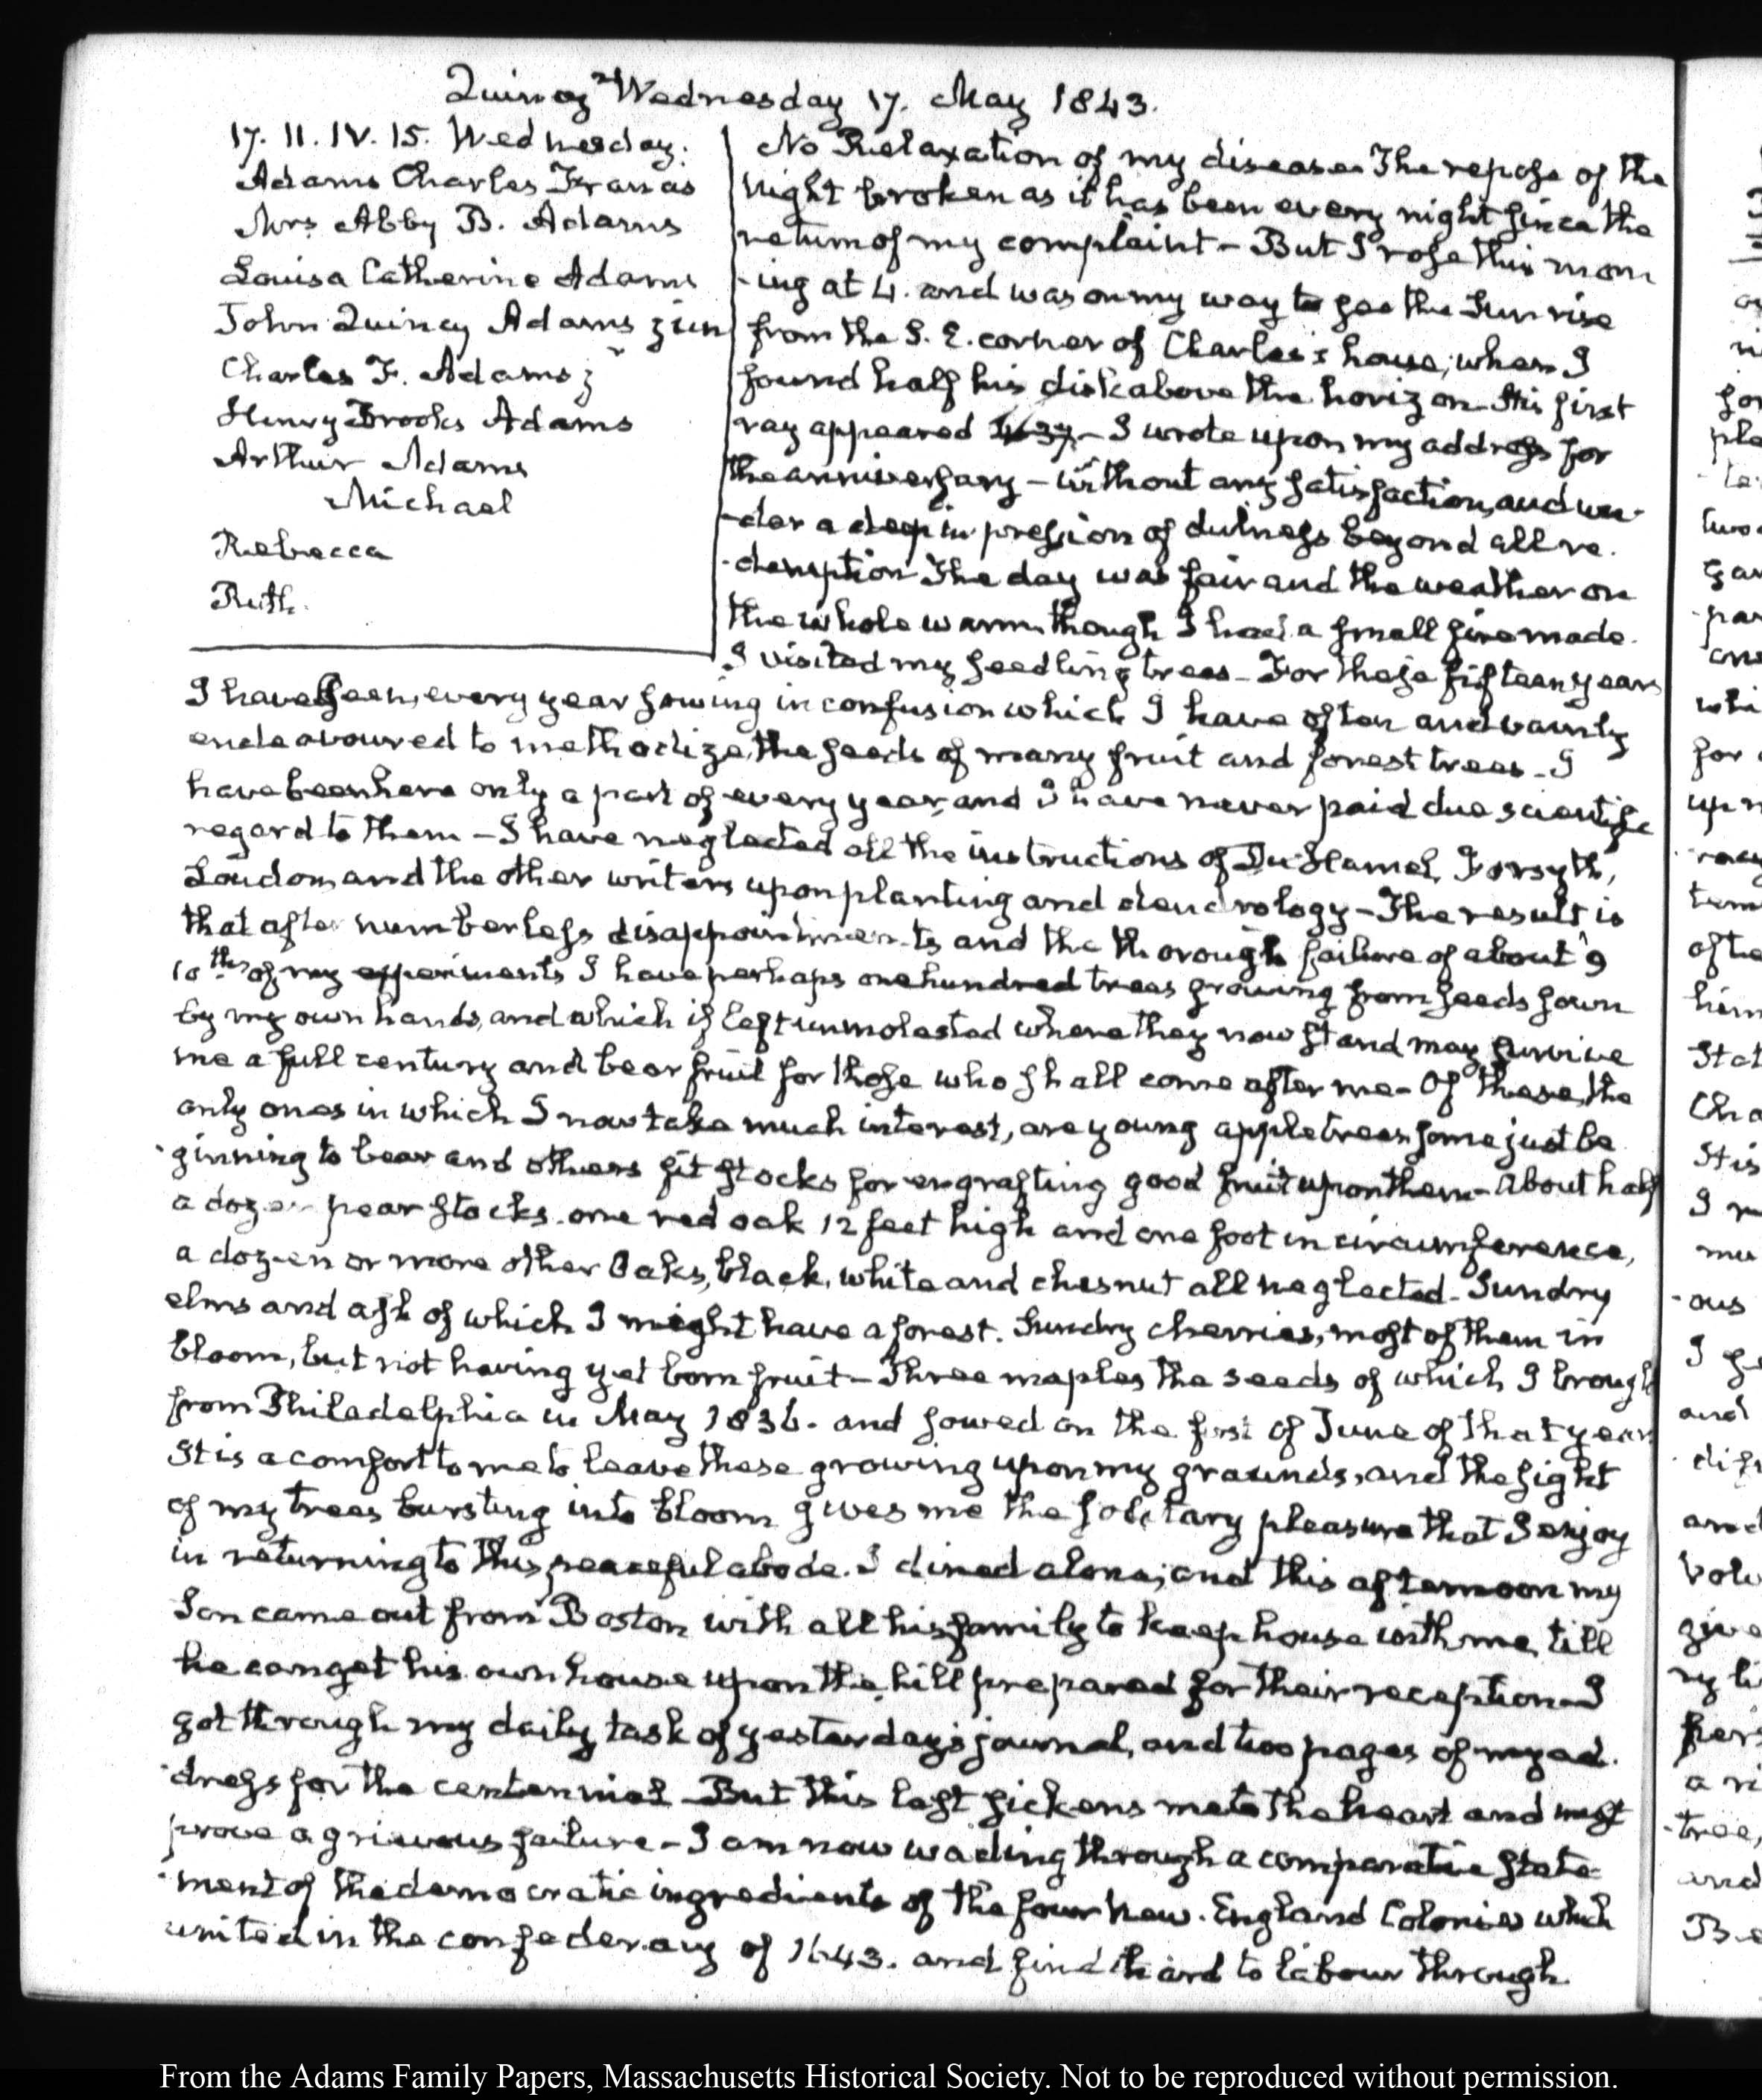 Quincy Wednesday 17. May 1843.
17. II. IV. 15. Wednesday.
Adams Charles Francis
Mrs Abby B. Adams
Louisa Catherine Adams
John Quincy Adams jun
Charles F. Adams jr
Henry Brooks Adams
Arthur Adams
Michael
Rebecca
Ruth.
No Relaxation of my disease. The repose of the
night broken as it has been every night since the
return of my complaint - But I rose this morn
-ing at 4. and was on my way to see the Sun rise
from the S. E. corner of Charles's house; when I
found half his disk above the horizon. His first
ray appeared 4:37. - I wrote upon my address for
the anniversary - without any satisfaction, and un-
-der a deep impression of dulness beyond all re.
-demption The day was fair and the weather on
the whole warm though I had a small fire made.
I visited my seedling trees - For these fifteen years
I have been, every year sowing in confusion which I have often and vainly
endeavoured to methodize, the seeds of many fruit and forest trees - I
have been here only a part of every year, and I have never paid due scientific
regard to them - I have neglected all the instructions of Du Hamel, Forsyth,
Loudon, and the other writers upon planting and dendrology - The result is
that after numberless disappointments and the thorough failure of about 9
10ths of my experiments I have perhaps one hundred trees growing from seeds sown
by my own hands, and which if left unmolested where they now stand may survive
me a full century and bear fruit for those who shall come after me - Of these, the
only ones in which I now take much interest, are young apple trees, some just be
-ginning to bear and others fit stocks for engrafting good fruit upon them - About half
a dozen pear stocks. one red oak 12 feet high and one foot in circumference,
a dozen or more other Oaks, black, white and chesnut all neglected - Sundry
elms and ash of which I might have a forest. Sundry cherries, most of them in
bloom, but not having yet born fruit - Three maples the seeds of which I brought
from Philadelphia in May 1836. and sowed on the first of June of that year
It is a comfort to me to leave these growing upon my grounds, and the sight
of my trees bursting into bloom gives me the solitary pleasure that I enjoy
in returning to this peaceful abode. I dined alone; and this afternoon my
Son came out from Boston with all his family to keep house with me, till
he can get his own house upon the hill prepared for their reception - I
got through my daily task of yesterday's journal, and two pages of my ad.
-dress for the centennial - But this last sickens me to the heart and must
prove a grievous failure - I am now wading through a comparative state
-ment of the democratic ingredients of the four New. England Colonies which
united in the confederacy of 1643. and find it hard to labour through.
From the Adams Family Papers, Massachusetts Historical Society. Not to be reproduced without permission.